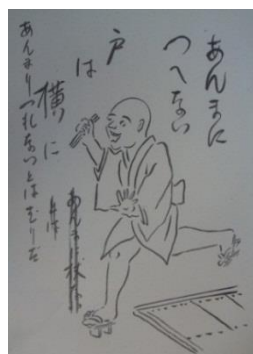 あんまに
つへない
戸
は
横に
あんまりつれないとはむりだ